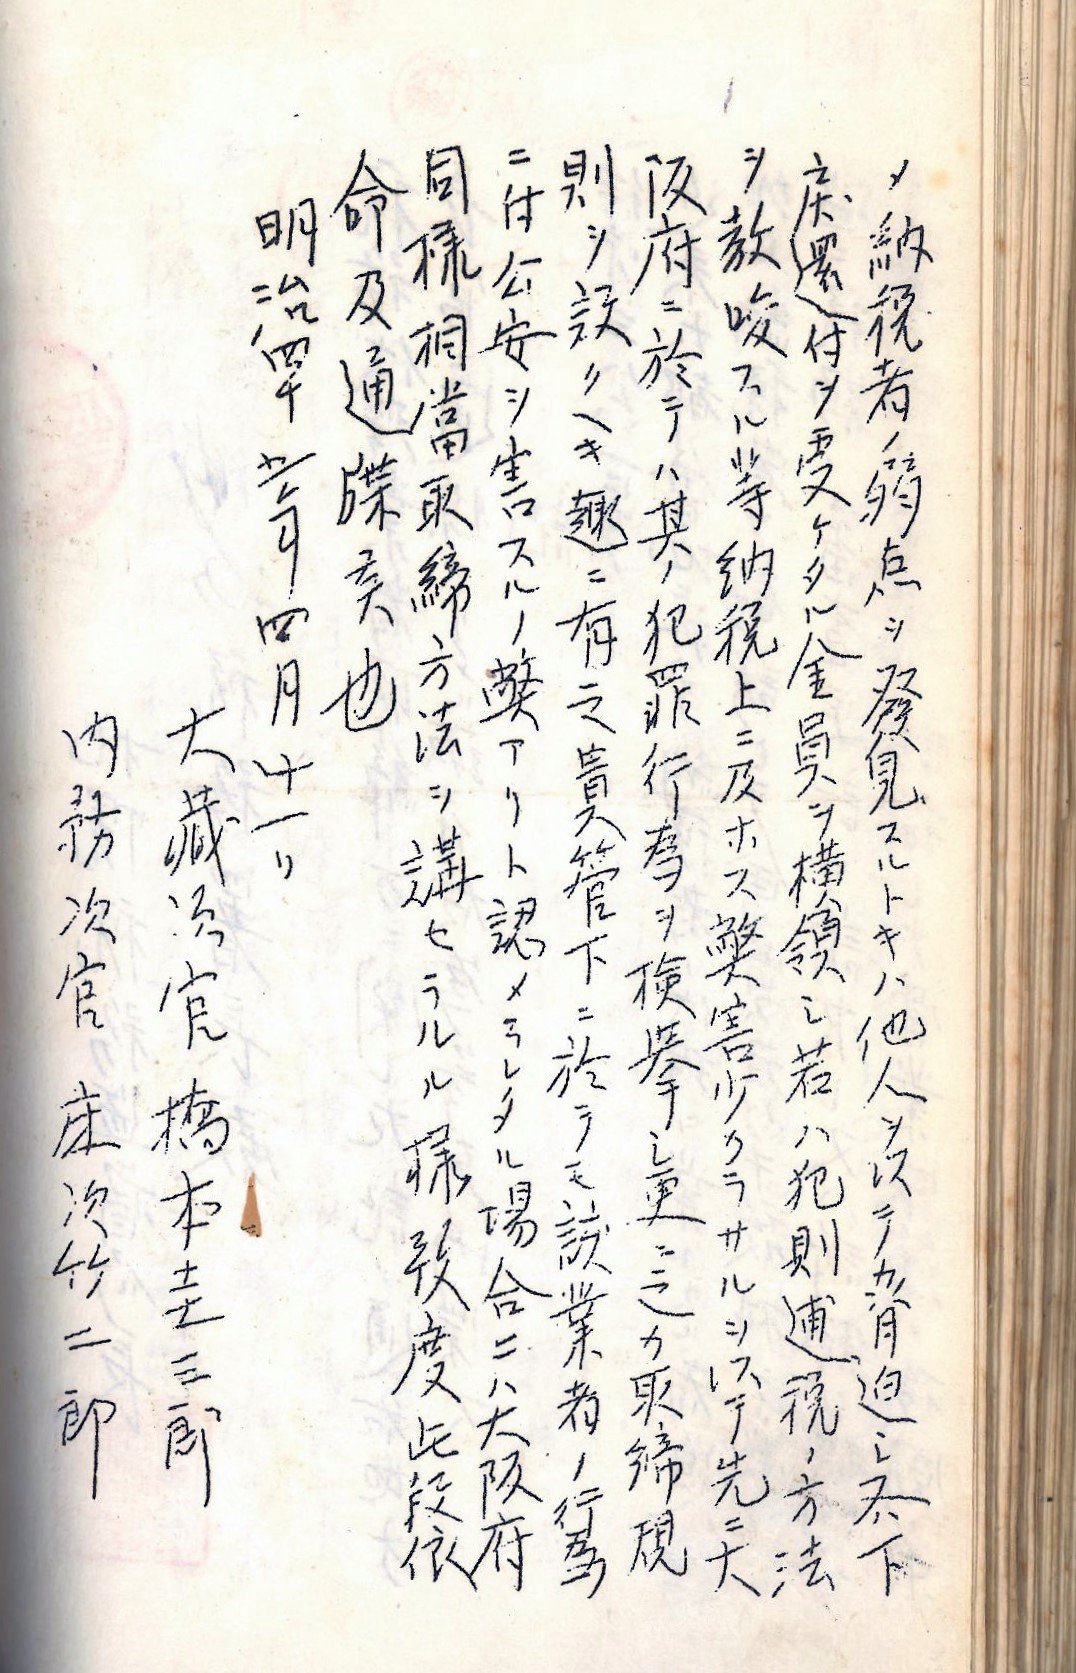 メ納税者ノ弱点ヲ発見スルトキハ他人ヲ以テ脅迫シ又下
戻還付ヲ受ケタル金員ヲ横領シ若ハ犯則逋税ノ方法
ヲ教唆スル等納税上ニ及ホス弊害少カラサルヲ以テ先ニ大
阪府ニ於テハ其ノ犯罪行為ヲ検挙シ更ニ之カ取締規
則ヲ設クヘキ趣ニ有之貴管下ニ於テモ該業者ノ行為
ニ付公安ヲ害スルノ弊アリト認メラレタル場合ニハ大阪府
同様相當取締方法ヲ講セラルル様致度此段依
命及通牒候也
明治四十 年四月十一日
大蔵次官 橋本圭三郎
内務次官 床次竹二郎